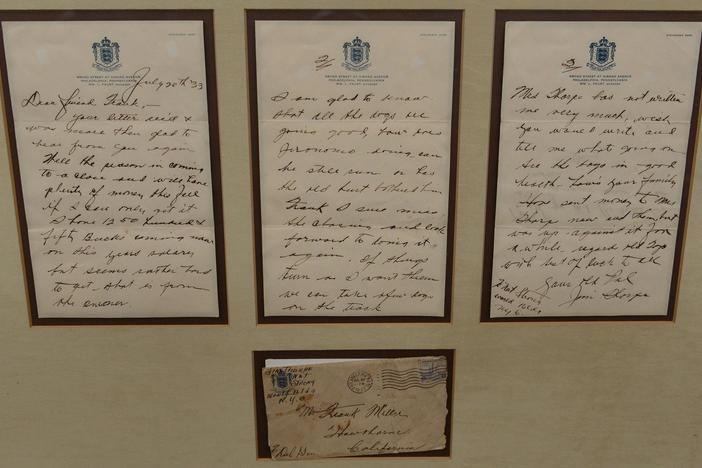 BROAD STREET AT GIRARD AVENUE
PHILADELPHIA, PENNSYLVANIA
July 20th '33
Dear friend Frank,-
your letter recd &
was more than glad to
hear from you again
Well the season in coming
to a close and will have
plenty of money this fall
if I can only get it
I have 1250 hundred &
fifty Bucks coming
on this years salary
but seems rather hard
to get. that is from
the owner.
2/
BROAD STREET AT GIRARD AVENUE
PHILADELPHIA, PENNSYLVANIA
I am glad to know
that all the dogs are
going good, how does
Jeronomo doing, can
he still run or has
the old hurt bothered him
Frank I sure miss
the chasing and look
forward to doing it
again. If things
turn as I want them
we can take a few dogs
on the track
3/
BROAD STREET AT GIRARD AVENUE
PHILADELPHIA, PENNSYLVANIA
Mrs Thorpe has not written
me very much, wish
you would write and
tell me what going on
See the boys in good
health. hows your family
sent money to Mrs
Thorpe now and then, but
was up against it for
a while. regard old Top
with best of luck to all
Your Old Pal
Jim Thorpe
World Bldg
N.Y.C.
World Bldg
N.Y.C.
Mr Frank Miller
Hawthorne
California